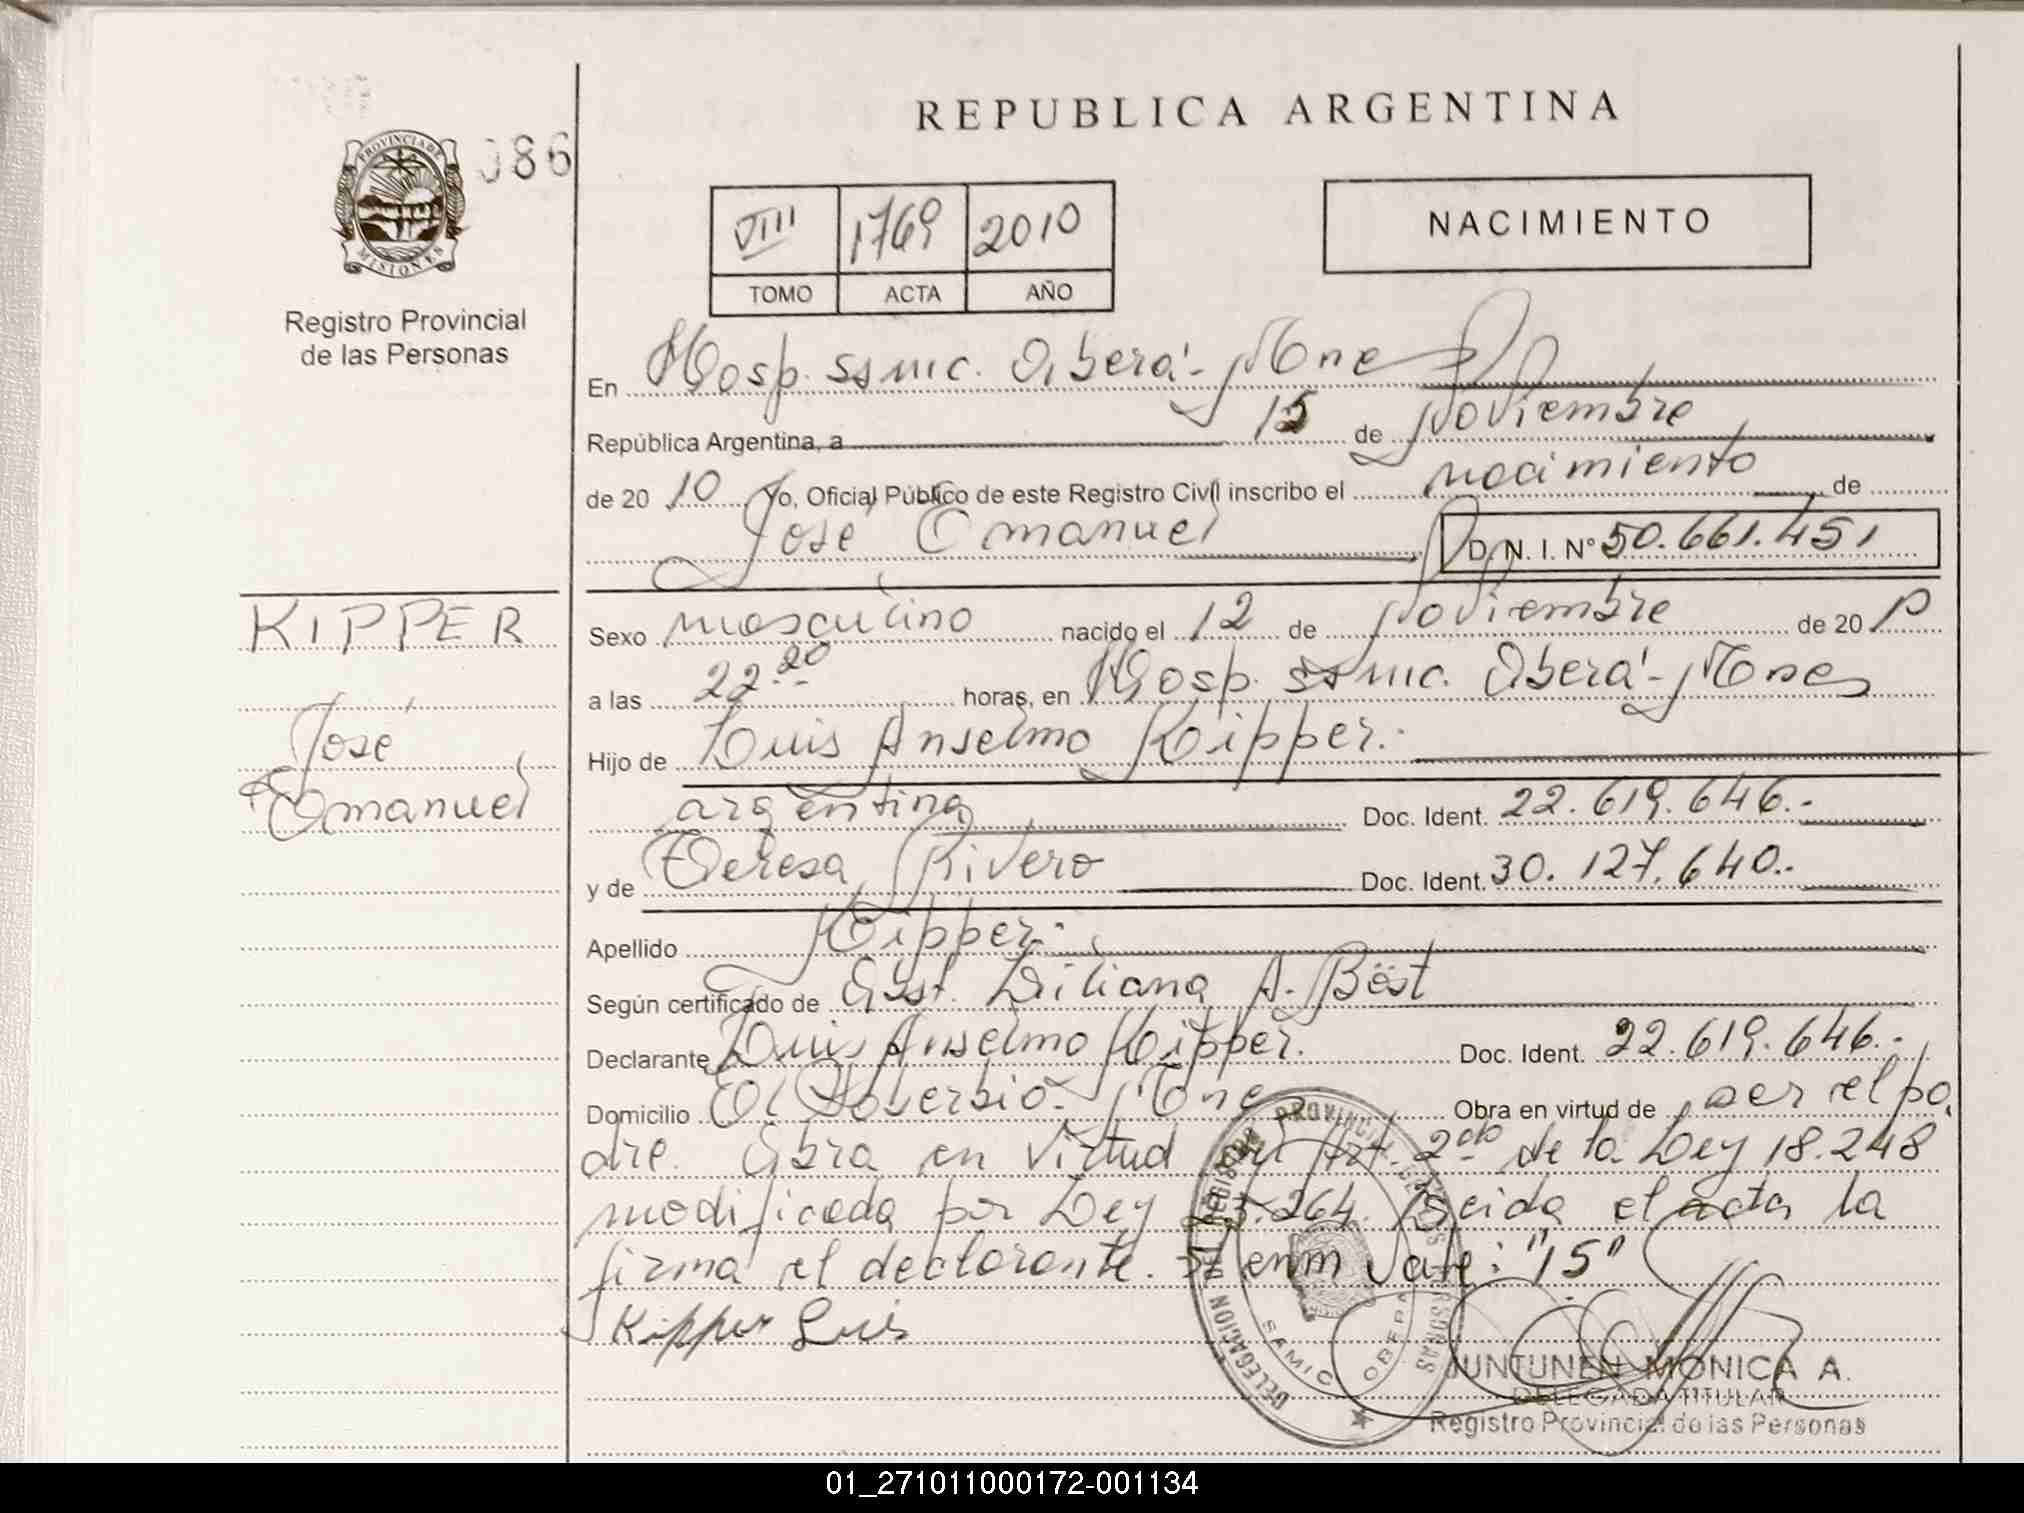 REPUBLICA ARGENTINA
PROVINCIA DE
MISIONES
086
Registro Provincial
de las Personas
VIII 1769 2010
TOMO ACTA AÑO
NACIMIENTO
En Hosp. SAMIC. Oberá - Mnes
República Argentina, a 15 de Noviembre
de 20 10 Yo, Oficial Público de este Registro Civil inscribo el nacimiento de
José Emanuel D. N. I. Nº 50.661.451
KIPPER
José
Emanuel
Sexo masculino nacido el 12 de Noviembre de 20 10
a las 22.20 horas, en Hosp. SAMIC. Oberá - Mnes
Hijo de Luis Anselmo Kipper.-
argentina Doc. Ident. 22.619.646.-
y de Teresa Rivero Doc. Ident. 30.127.640.-
Apellido Kipper.-
Según certificado de Obst. Liliana A. Böst
Declarante Luis Anselmo Kipper. Doc. Ident. 22.619.646.-
Domicilio El Soberbio - Mnes Obra en virtud de ser el pa
dre. Obra en virtud del Art. 2do de la Ley 18.248
modificada por Ley 23.264. Leida el acta la
firma el declarante. Enm Vale: "15"
Kipper Luis
DELEGACION DEL REGISTRO PROVINCIAL DE LAS PERSONAS
SAMIC OBERA
JUNTUNEN MONICA A.
DELEGADA TITULAR
Registro Provincial de las Personas
01_271011000172-001134